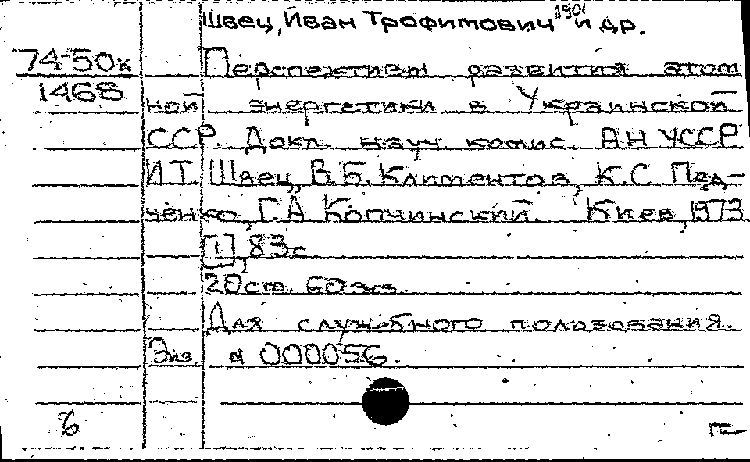 1901
Швец, Иван Трофимович и др.
74-50к Перспективы развития атом
1468
ной энергетики в Украинской
ССР. Докл. науч. комис. АН УССР
И.Т. Швец, В.Б. Климентов, К.С. Пад-
ченко, Г.А. Копчинский. Киев, 1973
[1], 83с
20см. 60экз.
Для служебного пользования.
Экз. 000056.